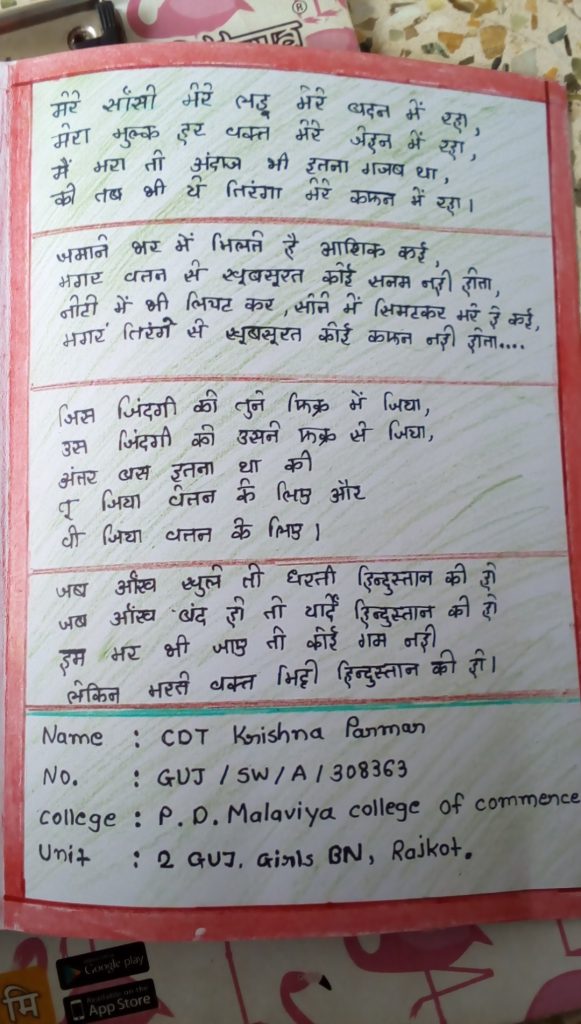 मेरे साँसो मेरे लहू मेरे बदन में रहा,
मेरा मुल्क हर वक्त मेरे जेहन में रहा,
मैं मरा तो अंदाज भी इतना गजब था,
की तब भी ये तिरंगा मेरे कफन में रहा।
जमाने भर में मिलते है आशिक कई,
मगर वतन से खूबसूरत कोई सनम नही होता,
नोटो में भी लिपट कर, सोने में सिमटकर मरे है कई,
मगर तिरंगे से खूबसूरत कोई कफन नही होता....
जिस जिंदगी को तुने फिक्र में जिया,
उस जिंदगी को उसने फक्र से जिया,
अंतर बस इतना था की
तू जिया वेतन के लिए और
वो जिया वतन के लिए।
जब आँख खुले तो धरती हिन्दुस्तान की हो
जब आँख बंद हो तो यादें हिन्दुस्तान की हो
हम मर भी जाए तो कोई गम नही
लेकिन मरते वक्त मिट्टी हिन्दुस्तान की हो।
Name : CDT Krishna Parmar
No. : GUJ / SW / A / 308363
college : P. D. Malaviya college of commerce
Unit : 2 GUJ. Girls BN, Rajkot.
मि
Google play
Available on the
App Store